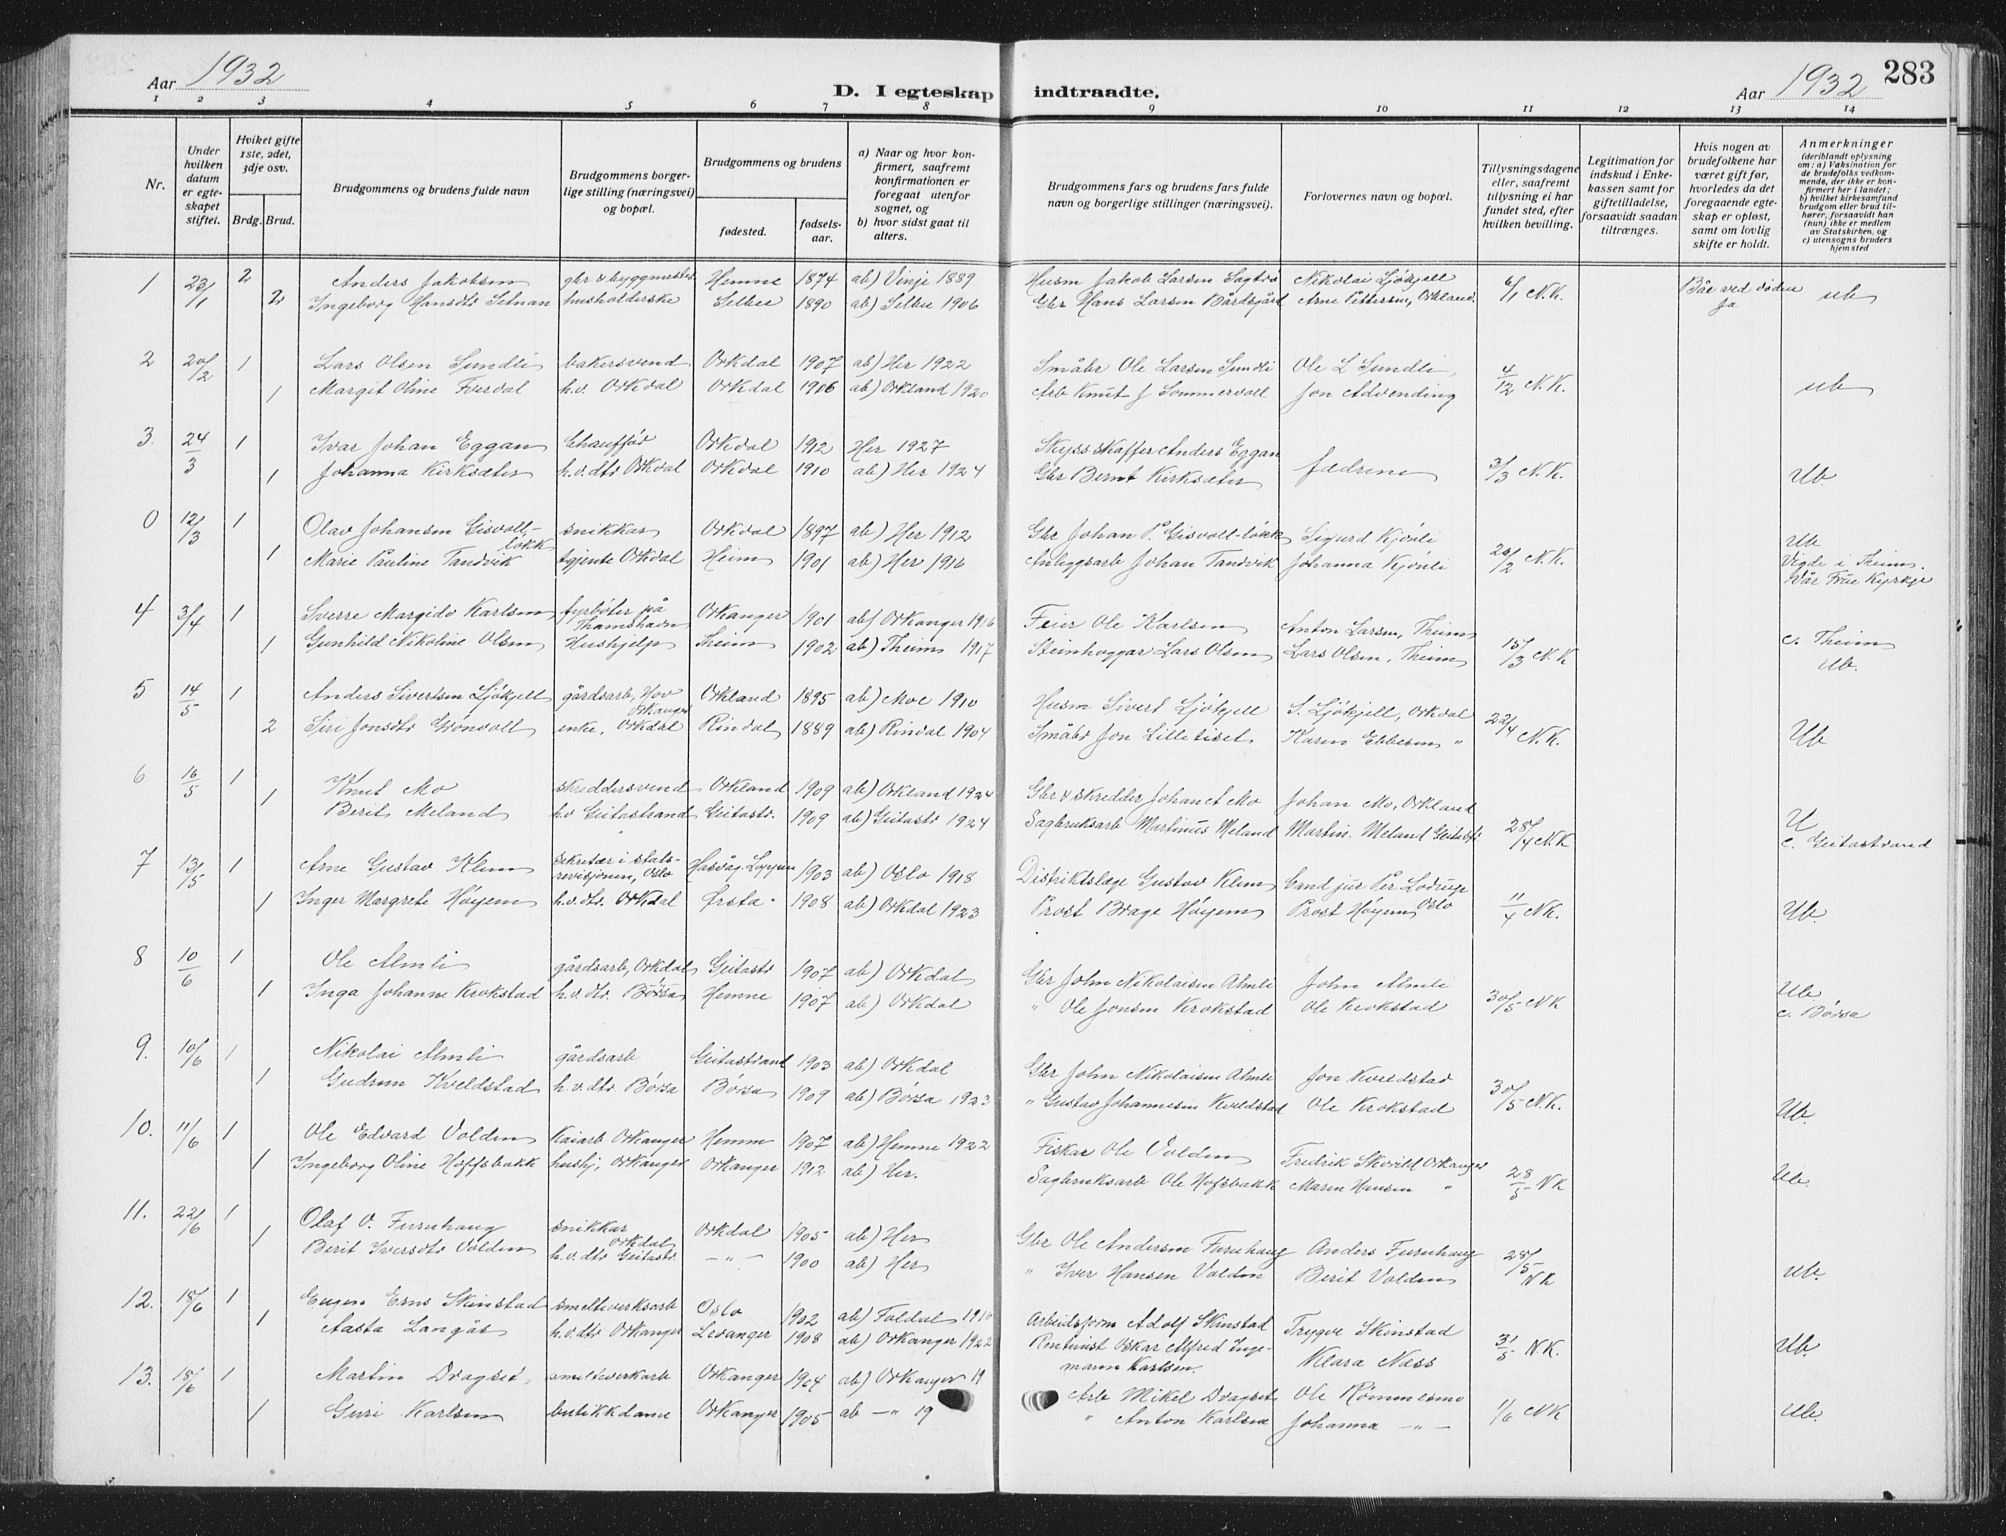 Aar 1932
D. I egteskap indtraadte.
Aar 1932 283
1 2 3 4 5 6 7 8 9 10 11 12 13 14
Nr.
Under hvilken datum er egteskapet stiftet.
Hviket gifte 1ste, 2det, 3dje osv.
Brdg. Brud.
Brudgommens og brudens fulde navn
Brudgommens borgerlige stilling (næringsvei) og bopæl.
Brudgommens og brudens
fødested.
fødselsaar.
a) Naar og hvor konfirmert, saafremt konfirmationen er foregaat utenfor sognet, og
b) hvor sidst gaat til alters.
Brudgommens fars og brudens fars fulde navn og borgerlige stillinger (næringsvei).
Forlovernes navn og bopæl.
Tillysningsdagene eller, saafremt tillysning ei har fundet sted, efter hvilken bevilling.
Legitimation for indskud i Enkekassen samt for giftetilladelse, forsaavidt saadan tiltrænges.
Hvis nogen av brudefolkene har været gift før, hvorledes da det foregaaende egteskap er opløst, samt om lovlig skifte er holdt.
Anmerkninger (deriblandt oplysning om: a) Vaksination for de brudefolks vedkommende, der ikke er konfirmert her i landet; b) hvilket kirkesamfund brudgom eller brud tilhører, forsaavidt han (hun) ikke er medlem av Statskirken, og c) utensogns bruders hjemsted
1 23/1 2 Anders Jakobsen gbr & byggmester Hemne 1874 ab) Vinje 1889 Husm Jakob Larsen Nikolai Ljøkjell 6/1 N.K. Båe ved døden ub
2 Ingeborg Hansdtr Selnan husholderske Selbu 1890 ab) Selbu 1906 Gbr Hans Larsen Bårdsgård Arne Pettersen, Orkland Ja
2 20/2 1 Lars Olsen Sundli bakersvend Orkdal 1907 ab) Her 1922 Småbr Ole Larsen Sundli Ole L Sundli 4/12 N.K.
1 Margit Oline h.v. Orkdal Orkdal 1906 ab) Orkland 1920 Arb Knut J Sommervoll Jon Advending ub
3. 24/3 1 Ivar Johan Eggan Chauffør Orkdal 1912 Her 1927 Skysskaffer Anders Eggan fedrene 3/3 N.K.
1 Johanna Kirksæter h.v.dtr Orkdal Orkdal 1910 ab) Her 1924 Gbr Bernt Kirksæter Ub.
0 12/3 1 Olav Johansen Gisvoll-løkk snikkar Orkdal 1897 ab) Her 1912 Gbr Johan P. Gisvoll-løkk Sigurd Kjønli 20/2 N.K. Ub
1 Marie Pauline Tandvik tgjente Orkdal Heim 1901 ab) Her 1916 Anleggsarb Johan Tandvik Johanna Kjønli Vigde i Theim. Vår Frue Kyrkje
4 3/4 1 Sverre Margido Karlsen fyrbøter på Thamshavn Orkanger 1901 ab) Orkanger 1916 Feier Ole Karlsen Anton Larsen, Theim 15/3 N.K c. Theim
1 Gunhild Nikoline Olsen Hushjelp Theim 1902 ab) Theim 1917 Steinhoggar Lars Olsen Lars Olsen, Theim Ub.
5 14/5 1 Anders Sivertsen Ljøkjell gårdsarb, Hov Orkanger Orkland 1895 ab) Moe 1910 Husm Sivert Ljøkjell S. Ljøkjell, Orkdal 22/4 N.K.
2 Siri Jonsdtr Grønvoll enke, Orkdal Rindal 1889 ab) Rindal 1904 Småbr Jon Lilletiset Karen Ebbesen " Ub
6 16/5 1 Knut Mo skreddersvend Orkland 1909 ab) Orkland 1924 Gbr & skredder Johan Mo Johan Mo, Orkland 28/4 N.K U
1 Berit Meland h.v Geitastrand Geitastr. 1909 ab) Geitastr 1924 Sagbruksarb Martinus Meland Martin. Meland Geitastr c. Geitastrand
7 13/5 1 Arne Gustav Klem sekretær i statsrevisjonen, Oslo Hasvåg, Loppen 1903 ab) Oslo 1918 Distriktslæge Gustav Klem Cand jur Per Lodrup Oslo 11/4 N.K.
1 Inger Margrete Høyem h.v.dtr. Orkdal Ørsta 1908 ab) Orkdal 1923 Prost Brage Høyem Prost Høyem Ub.
8 10/6 1 Ole Almli gårdsarb, Orkdal Geitastr 1907 ab) Orkdal Gbr John Nikolaisen Almli John Almli 30/5 N.K Ub
1 Inga Johanne Krokstad h.v.dtr. Børsa Hemne 1907 ab) Orkdal " Ole Jonsen Krokstad Ole Krokstad c. Børsa
9. 10/6 1 Nikolai Almli gårdsarb Geitastrand 1903 ab) Orkdal Gbr John Nikolaisen Almli Jon Kveldstad 30/5 N.K.
1 Gudrun Kveldstad h.v.dtr Børsa Børsa 1909 ab) Børsa 1923 " Gustav Johannesen Kveldstad Ole Krokstad Ub.
10. 11/6 1 Ole Edvard Volden Kaiarb Orkanger Hemne 1907 ab) Hemne 1922 Fiskar Ole Volden Fredrik Orkanger 28/5 N K
1 Ingeborg Oline Hoffsbakk hushj, Orkanger Orkanger 1912 ab) Her. Sagbruksarb Ole Hofsbakk Maren Hansen " Ub.
11. 22/6 1 Olaf O. Furuhaug snikkar Orkdal Orkdal 1905 ab) Her Gbr Ole Andersen Furuhaug Anders Furuhaug 28/5 NK
1 Berit Iversdtr Volden h.v.dtr Geitastr — " — 1900 ab) Her " Iver Hansen Volden Berit Volden Ub.
12. 15/6 1 Eugen Erns Skinstad smelteverksarb Oslo 1902 ab) Foldal 1916 Arbeidsform Adolf Skinstad Trygve Skinstad 31/5 N.K.
1 Aasta Langås h.v.dtr Orkanger Levanger 1908 ab) Orkanger 1922 Oskar Alfred Ingemann Karlsen. Klara Næss Ub.
13. 18/6 1 Martin Dragset, smelteverkarb Orkanger 1904 ab) Orkanger 19 Arb Mikel Dragset Ole Rømmesmo 1/6 N K
1 Guri Karlsen butikkdame Orkanger 1905 ab — " 19 " Anton Karlsen Johanna — " — Ub.